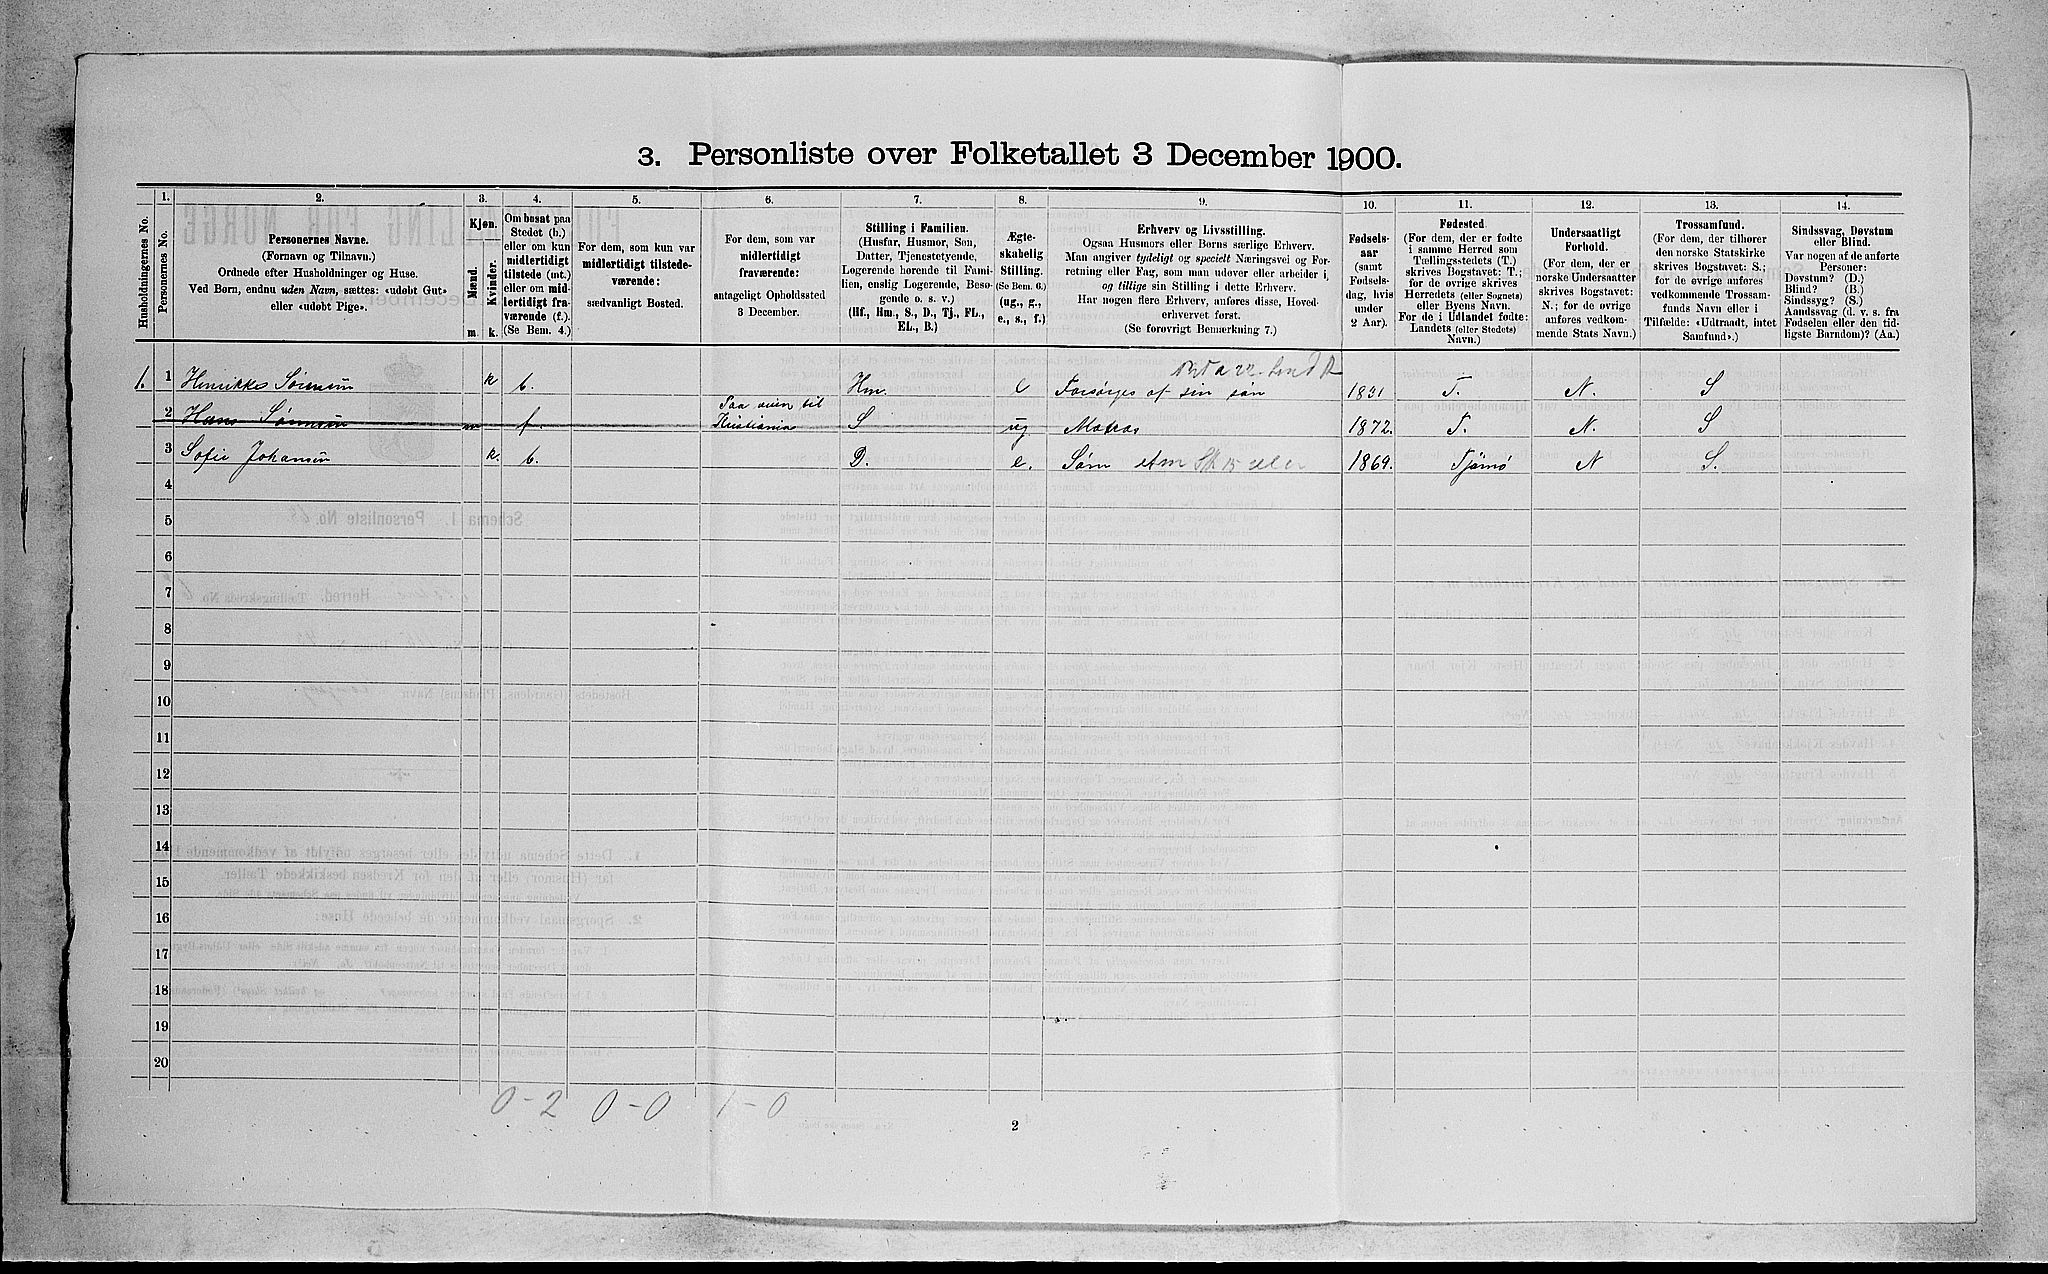 3. Personliste over Folketallet 3 December 1900.
Husholdningernes No.
1.
Personernes No.
2.
Personernes Navne.
(Fornavn og Tilnavn.)
Ordnede efter Husholdninger og Huse.
Ved Børn, endnu uden Navn, sættes: «udøbt Gut»
eller «udøbt Pige».
3.
Kjøn.
Mænd.
Kvinder.
m.
k.
4.
Om bosat paa
Stedet (b.)
eller om kun
midlertidigt
tilstede (mt.)
eller om mid-
lertidigt fra-
værende (f.).
(Se Bem. 4.)
5.
For dem, som kun var
midlertidigt tilstede-
værende:
sædvanligt Bosted.
6.
For dem, som var
midlertidigt
fraværende:
antageligt Opholdssted
3 December.
7.
Stilling i Familien.
(Husfar, Husmor, Søn,
Datter, Tjenestetyende,
Logerende hørende til Fami-
lien, enslig Logerende, Besø-
gende o. s. v.)
(Hf., Hm., S., D., Tj., FL.,
EL., B.)
8.
Ægte-
skabelig
Stilling.
(Se Bem. 6.)
(ug., g.,
e., s., f.)
9.
Erhverv og Livsstilling.
Ogsaa Husmors eller Børns særlige Erhverv.
Man angiver tydeligt og specielt Næringsvei og For-
retning eller Fag, som man udøver eller arbeider i,
og tillige sin Stilling i dette Erhverv.
Har nogen flere Erhverv, anføres disse, Hoved-
erhvervet først.
(Se forøvrigt Bemærkning 7.)
10.
Fødsels-
aar
(samt
Fødsels-
dag, hvis
under
2 Aar).
11.
Fødested.
(For dem, der er fødte
i samme Herred som
Tællingsstedets (T.)
skrives Bogstavet: T.;
for de øvrige skrives
Herredets (eller Sognets)
eller Byens Navn.
For de i Udlandet fødte:
Landets (eller Stedets)
Navn.)
12.
Undersaatligt
Forhold.
(For dem, der er
norske Undersaatter
skrives Bogstavet:
N.; for de øvrige
anføres vedkom-
mende Stats Navn.)
13.
Trossamfund.
(For dem, der tilhører
den norske Statskirke
skrives Bogstavet: S.;
for de øvrige anføres
vedkommende Trossam-
funds Navn eller i
Tilfælde: «Udtraadt, intet
Samfund».)
14.
Sindssvag, Døvstum
eller Blind.
Var nogen af de anførte
Personer:
Døvstum? (D.)
Blind? (B.)
Sindssyg? (S.)
Aandssvag (d. v. s. fra
Fødselen eller den tid-
ligste Barndom)? (Aa.)
1. 1 Henrikke Sørensen k b. Hm. e Forsørges af sin søn 1831 T. N. S
2 Hans Sørensen m f. Paa reisen til
Kristiania S ug Matros 1872. T. N. S
3 Sofie Johansen k. b. D. e. Søm 1869. Tjømø N S.
4
5
6
7
8
9
10
11
12
13
14
15
16
17
18
19
20
0-2 0-0 1-0
2